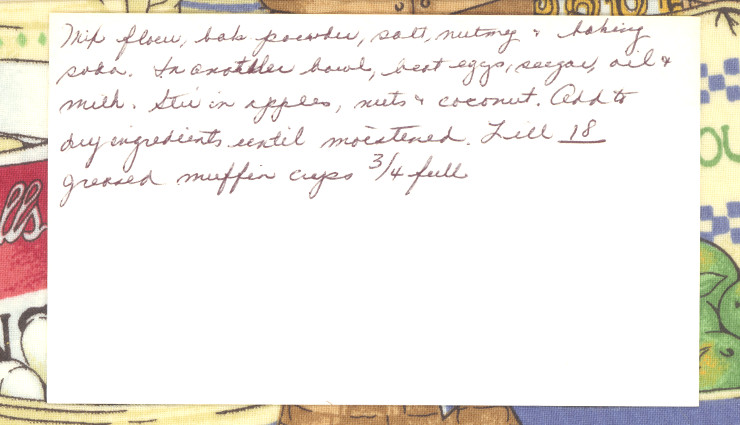 Mix flour, bak powder, salt, nutmeg & baking
soda. In another bowl, beat eggs, sugar, oil &
milk. Stir in apples, nuts & coconut. Add to
dry ingredients until moistened. Fill 18
greased muffin cups 3/4 full
lls
OU